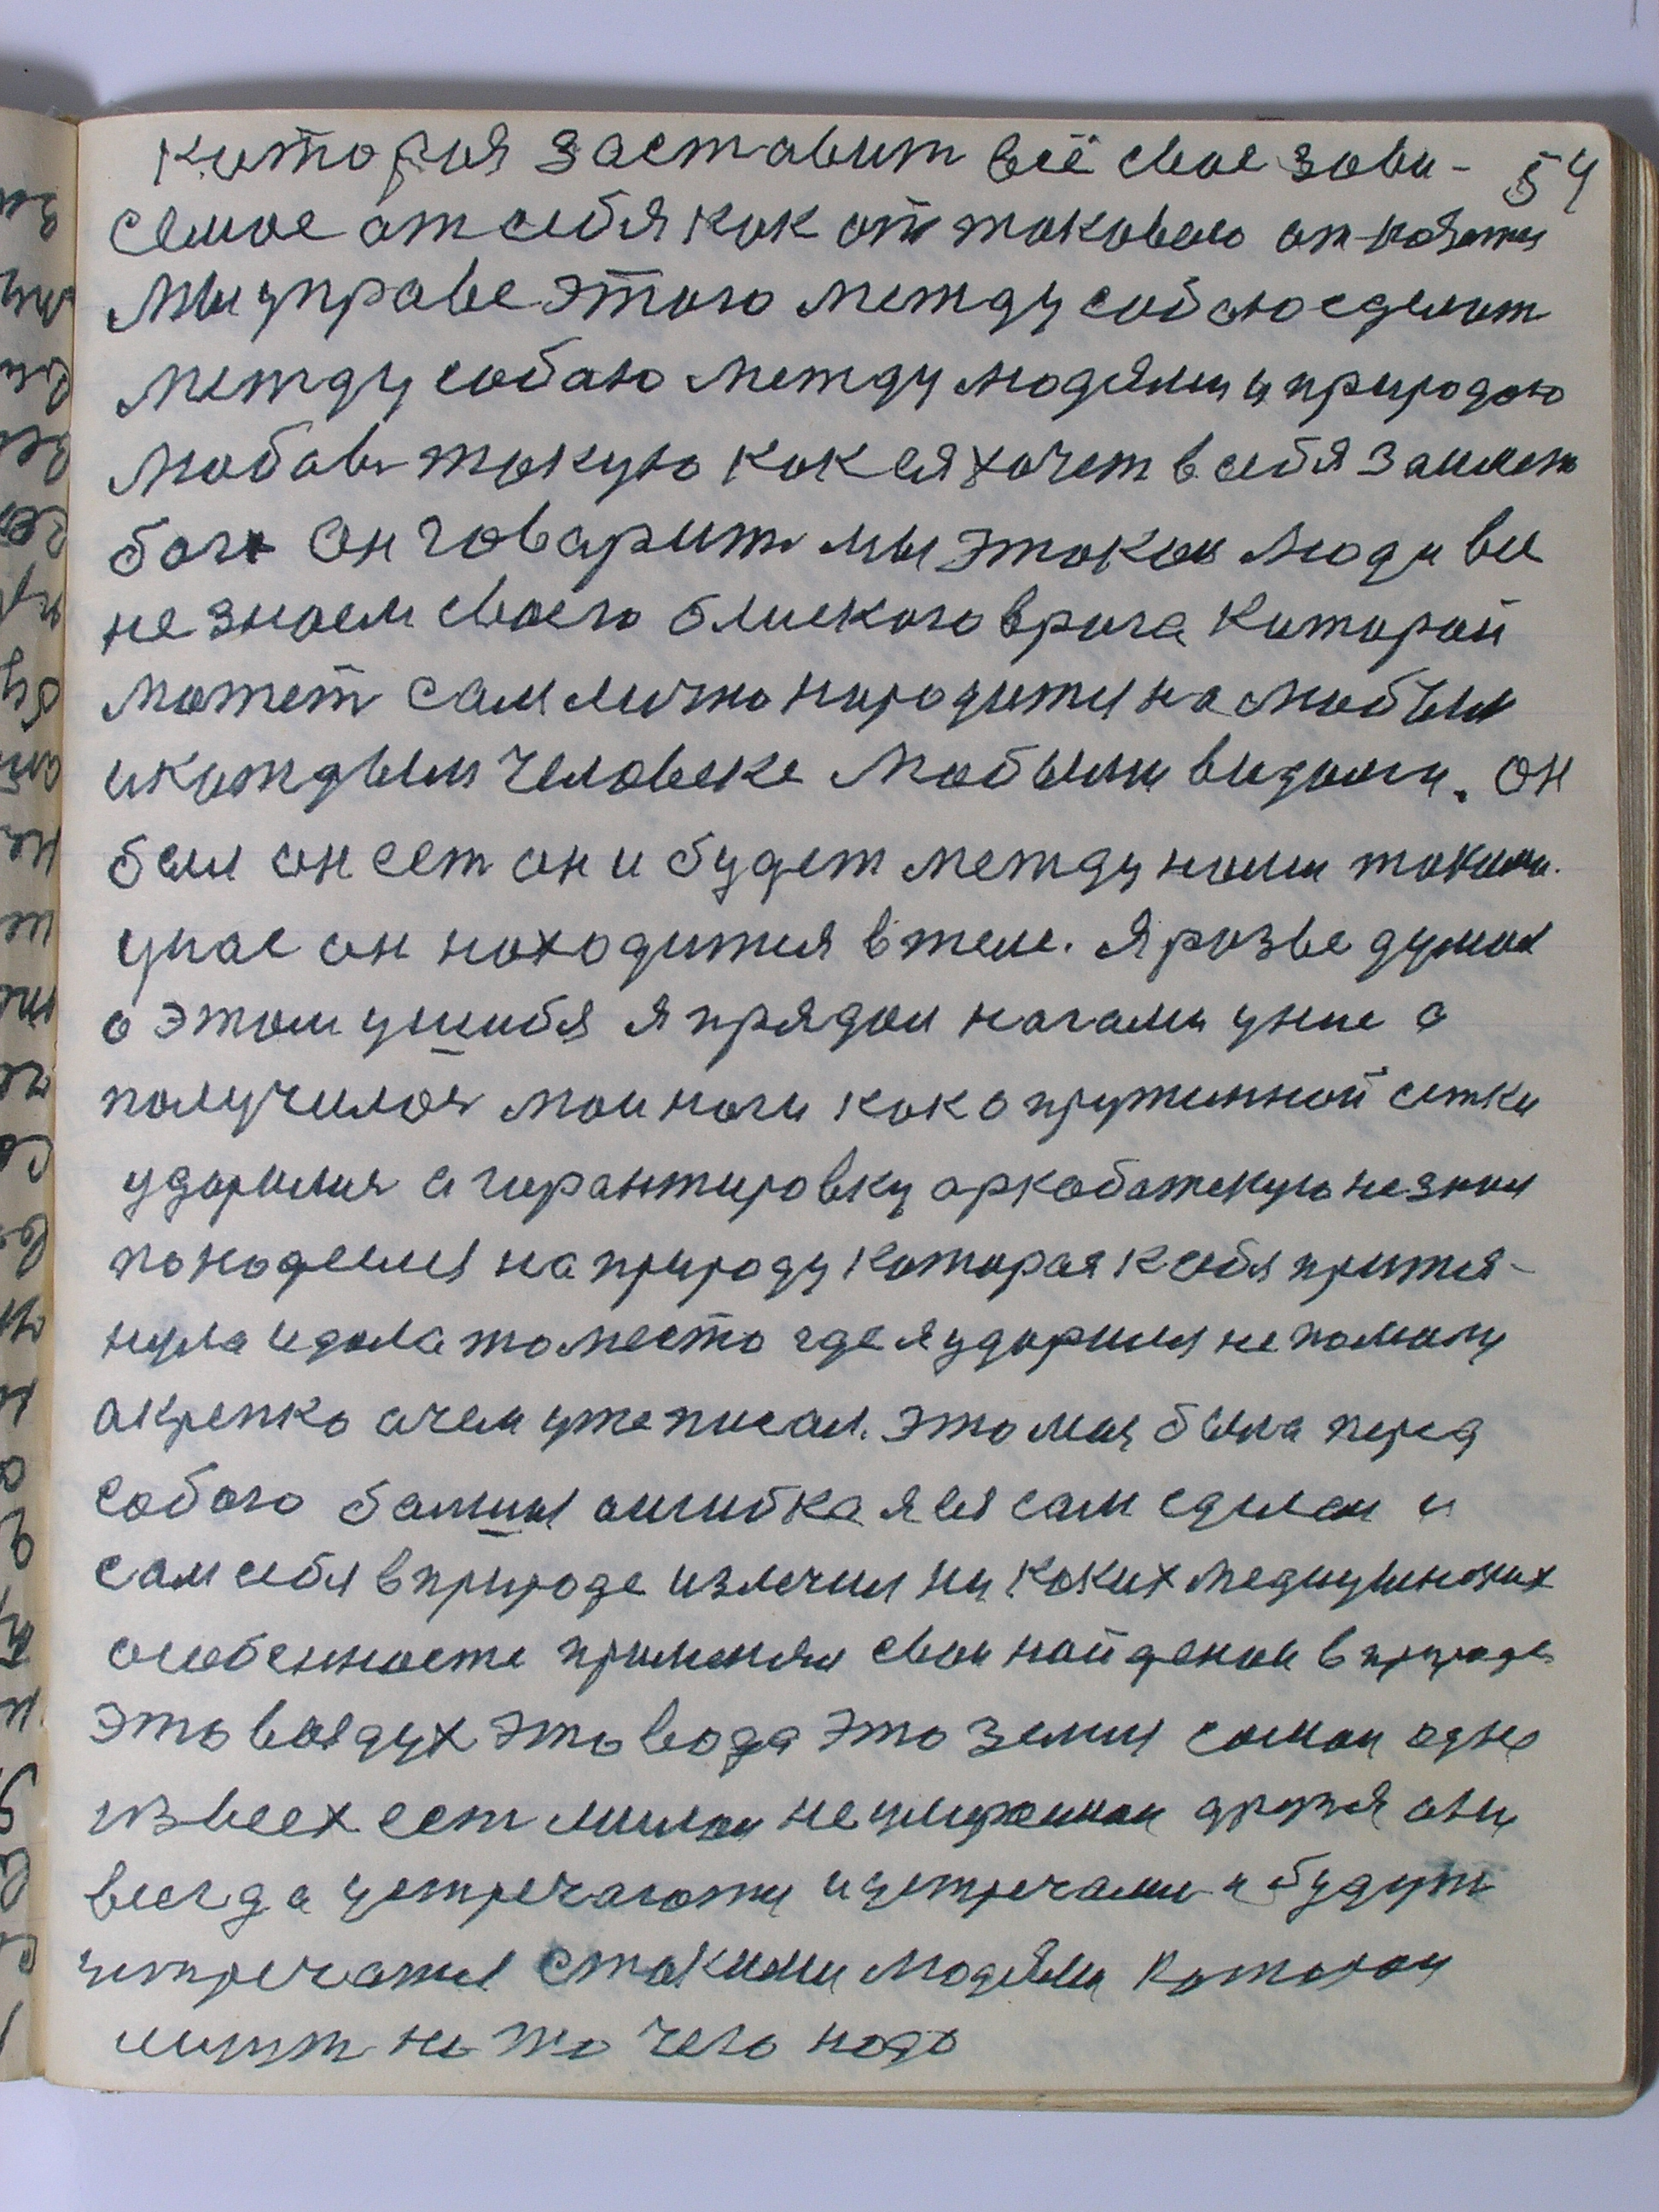 которая заставит всё свое зави- 54
семое от себя как от таковово отнятся
Мы управе этого между собою сделат
между собаю между людями и природою
любов такую как ея хочет в себя заимет
бог Он говарит мы этакаи люди все
не знаем своего блиского врага которай
может сам лично народится на любым
и каждым человеке любыми видами. Он
был он сет он и будет между нами такими
унас он находится в теле. Я розве думал
о этом ушибя я прядои ногами уние а
получилося мои ноги как о пружинной сетки
ударился а гирантировку аркабатскую незнал
понадеелся на природу которая к себя притя-
нула и дала то место где я ударился не помалу
а крепко очем уже писал. Это моя была перед
собою балшая ошибка я ея сам сделал и
сам себя в природе излечил ни каких медицинских
особенносте применял свои найденаи в природе
это воздух это вода это земля самаи одне
из всех ест милаи неумираимаи друзя они
всегда устречаются и устречались и будут
устречатся с такими людями катораи
ищут не то чего надо